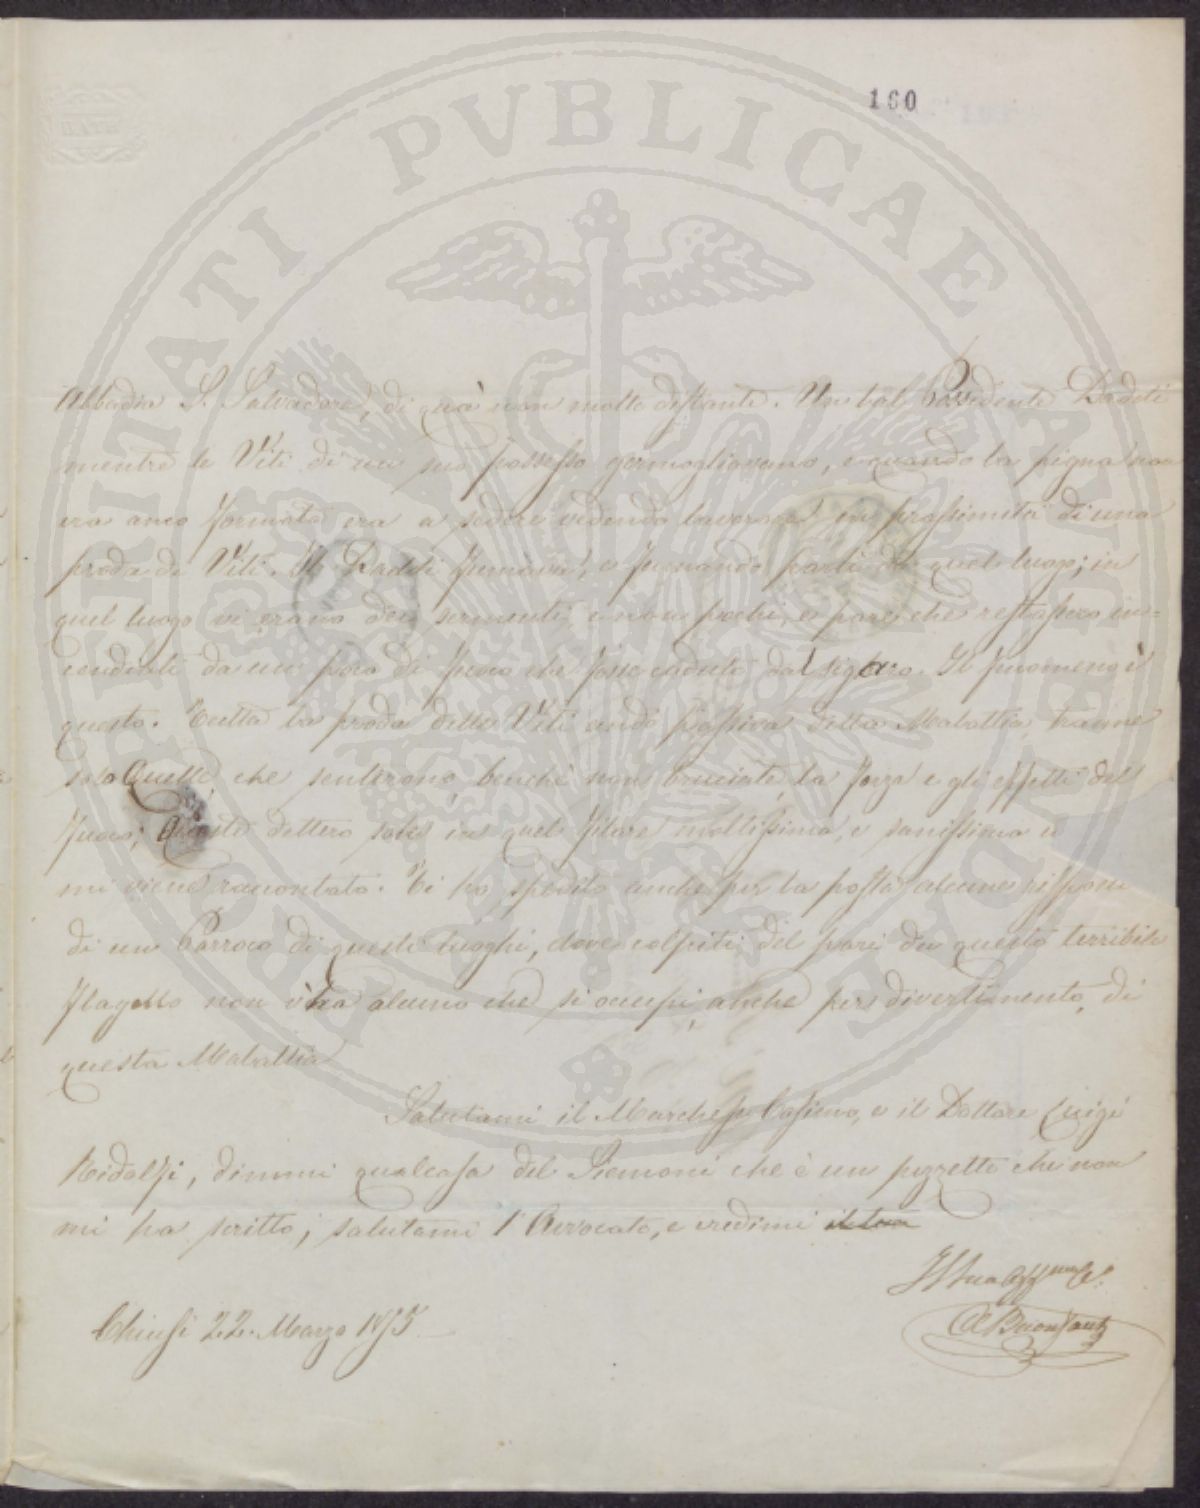 160
PVBLICAE
BATH
Abbadia S. Salvadore, di quà non molto distante. Un tal Possidente Dadeti
mentre le Viti di un suo possesso germogliavano, e quando la pigna non
era anco formata era a sedere vedendo lavorare in prossimità di una
proda di Viti. Il Dadeti fumava, e fumando partì da quel luogo; in
quel luogo vi erano dei sermenti e non pochi, e pare che restassero in=
cendiati da un poco di fuoco che fosse caduto dal sigaro. Il fenomeno è
questo. Tutta la proda delle Viti andò passiva della Malattia, tranne
solo Quelle, che sentirono, benchè non bruciate, la forza e gli effetti del
fuoco; Queste dettero sole in quel filare moltissima, e sanissima u
mi viene raccontato. Ti ho spedito anche per la posta alcune risposte
di un Parroco di questi luoghi, dove colpiti del pari da questo terribile
flagello non v'ha alcuno che si occupi, anche per divertimento, di
questa Malattia
Salutami il Marchese Cosimo, e il Dottore Luigi
Ridolfi, dimmi qualcosa del Siemoni che è un pezzetto che non
mi ha scritto; salutami l'Avvocato, e credimi il tuo
Il tuo Aff.mo A.o
Chiusi 22. Marzo 1855
A Buonfanti